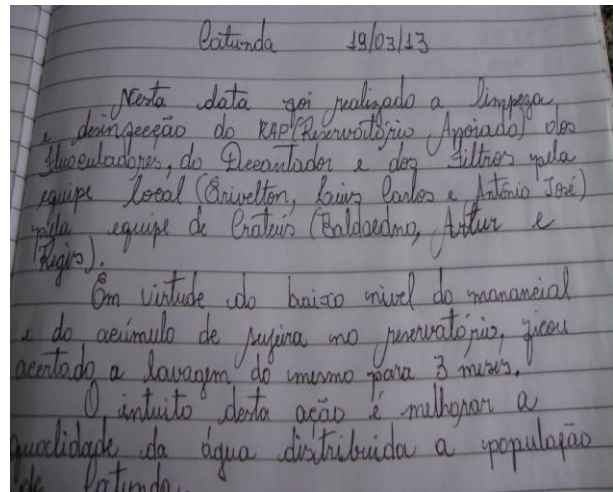 Catunda 19/03/13
Nesta data foi realizado a limpeza
e desinfecção do RAP (Reservatório Apoiado) dos
Fluoculadores, do Decantador e dos Filtros pela
equipe local (Erivelton, Luis Carlos e Antônio José)
pela equipe de Crateús (Baldoedno, Artur e
Regis).
Em virtude do baixo nivel do manancial
e do acúmulo de sujeira no reservatório, ficou
acertado a lavagem do mesmo para 3 meses.
O intuito desta ação é melhorar a
qualidade da água distribuida a população
de Catunda.